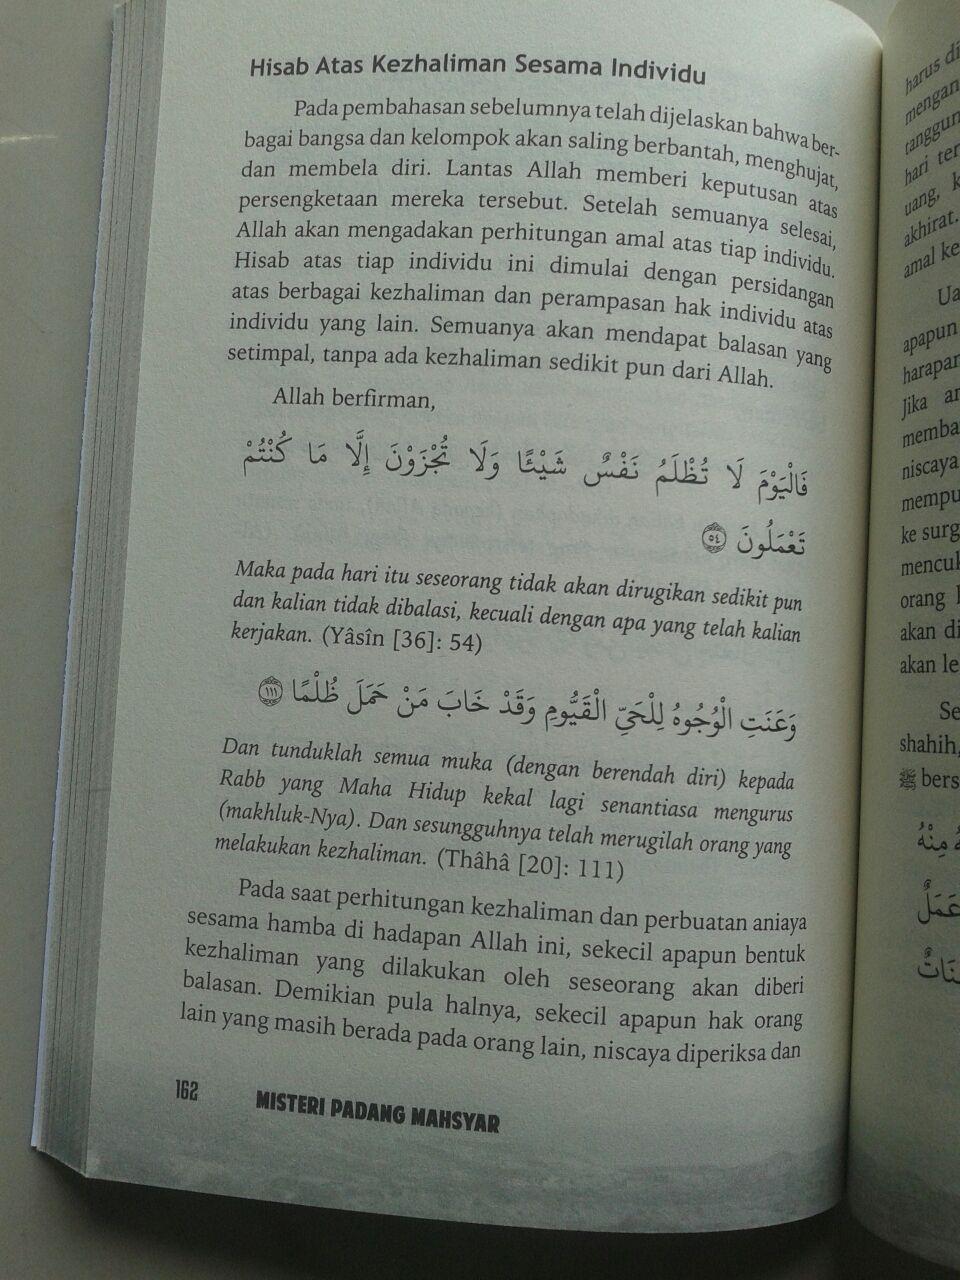 Hisab Atas Kezhaliman Sesama Individu
Pada pembahasan sebelumnya telah dijelaskan bahwa ber-
bagai bangsa dan kelompok akan saling berbantah, menghujat,
dan membela diri. Lantas Allah memberi keputusan atas
persengketaan mereka tersebut. Setelah semuanya selesai,
Allah akan mengadakan perhitungan amal atas tiap individu.
Hisab atas tiap individu ini dimulai dengan persidangan
atas berbagai kezhaliman dan perampasan hak individu atas
individu yang lain. Semuanya akan mendapat balasan yang
setimpal, tanpa ada kezhaliman sedikit pun dari Allah.
Allah berfirman,
فَالْيَوْمَ لَا تُظْلَمُ نَفْسٌ شَيْئًا وَلَا تُجْزَوْنَ إِلَّا مَا كُنْتُمْ
تَعْمَلُونَ ٥٤
Maka pada hari itu seseorang tidak akan dirugikan sedikit pun
dan kalian tidak dibalasi, kecuali dengan apa yang telah kalian
kerjakan. (Yâsîn [36]: 54)
وَعَنَتِ الْوُجُوهُ لِلْحَيِّ الْقَيُّومِ وَقَدْ خَابَ مَنْ حَمَلَ ظُلْمًا ١١١
Dan tunduklah semua muka (dengan berendah diri) kepada
Rabb yang Maha Hidup kekal lagi senantiasa mengurus
(makhluk-Nya). Dan sesungguhnya telah merugilah orang yang
melakukan kezhaliman. (Thâhâ [20]: 111)
Pada saat perhitungan kezhaliman dan perbuatan aniaya
sesama hamba di hadapan Allah ini, sekecil apapun bentuk
kezhaliman yang dilakukan oleh seseorang akan diberi
balasan. Demikian pula halnya, sekecil apapun hak orang
lain yang masih berada pada orang lain, niscaya diperiksa dan
162 MISTERI PADANG MAHSYAR
harus di
mengan
tanggun
hari ter
uang, k
akhirat.
amal ke
Ua
apapun
harapan
Jika an
memba
niscaya
mempu
ke surg
mencuk
orang l
akan di
akan le
Se
shahih,
ﷺ bers
مِنْهُ
عَمَلٌ